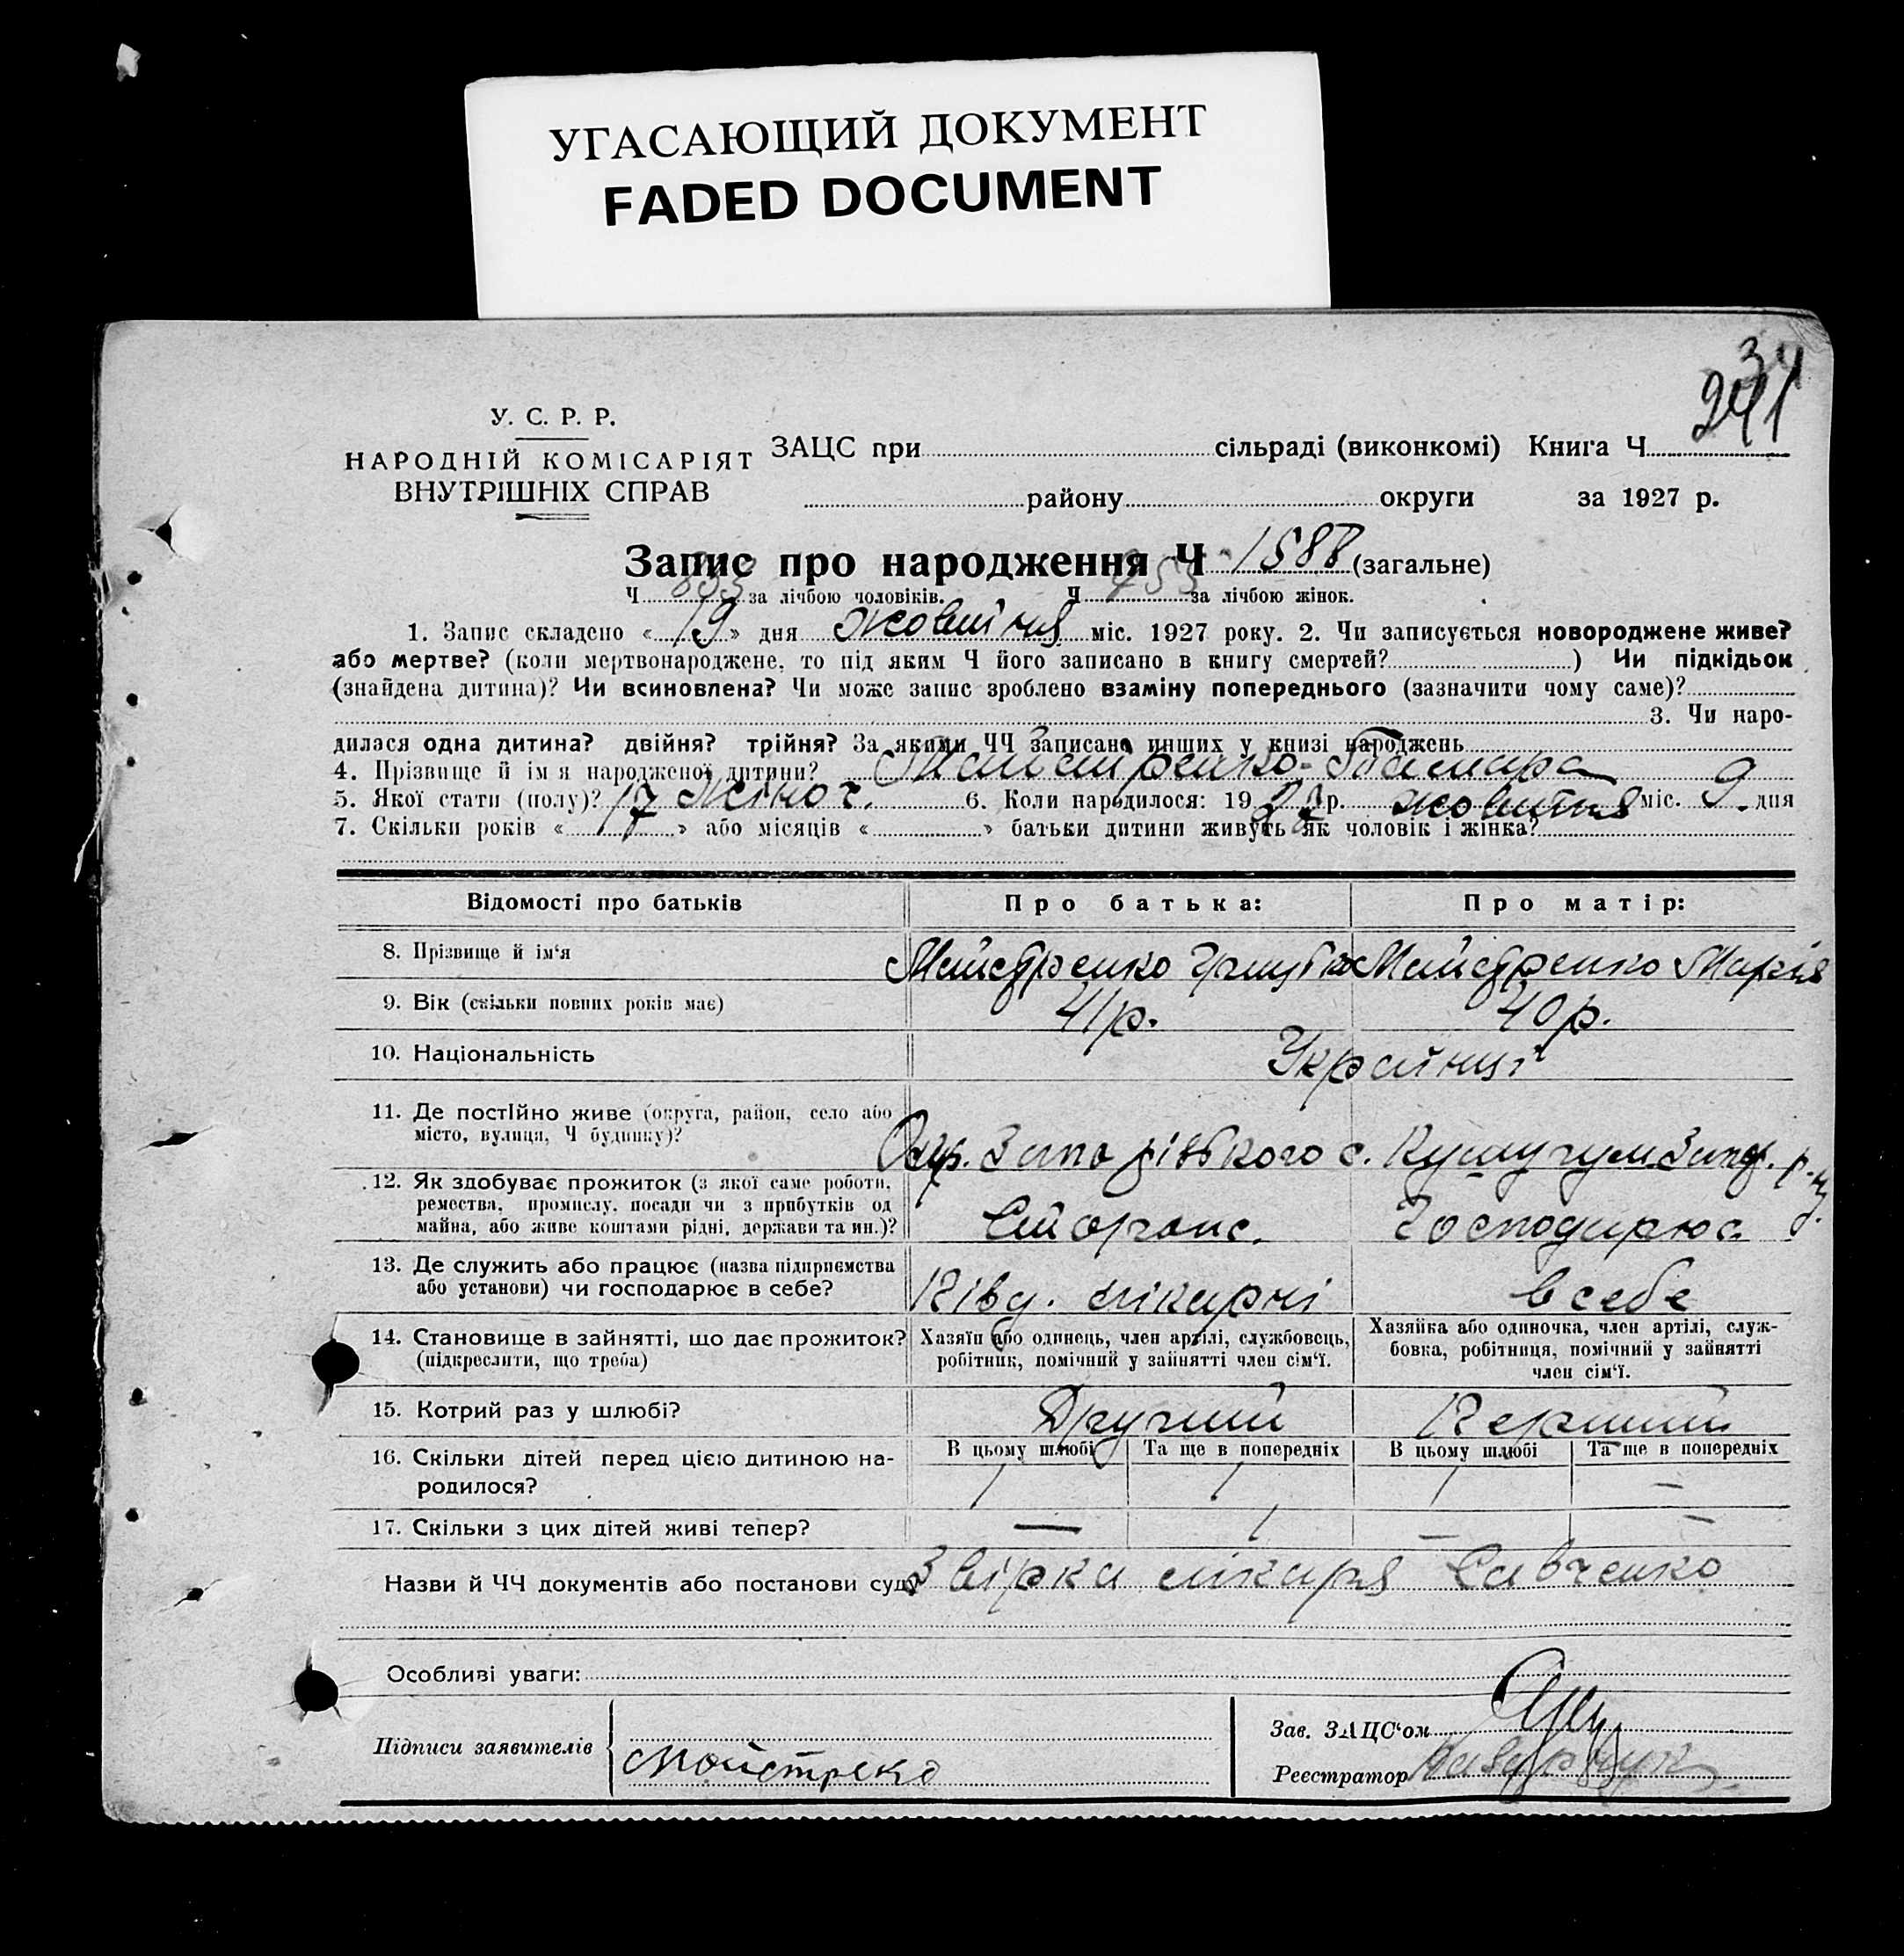 УГАСАЮЩИЙ ДОКУМЕНТ
FADED DOCUMENT
34
241
У. С. Р. Р.
НАРОДНІЙ КОМІСАРІЯТ
ВНУТРІШНІХ СПРАВ
ЗАЦС при сільраді (виконкомі) Книга Ч
району округи за 1927 р.
Запис про народження Ч 1588 (загальне)
Ч за лічбою чоловіків. Ч за лічбою жінок.
1. Запис складено « 19 » дня жовтня міс. 1927 року. 2. Чи записується новороджене живе?
або мертве? (коли мертвонароджене, то під яким Ч його записано в книгу смертей? ) Чи підкідьок
(знайдена дитина)? Чи всиновлена? Чи може запис зроблено взаміну попереднього (зазначити чому саме)?
3. Чи наро-
дилася одна дитина? двійня? трійня? За якими ЧЧ записано инших у книзі народжень
4. Прізвище й ім'я народженої дитини? Майстренко Тамара
5. Якої стати (полу)? жіноч. 6. Коли народилося: 1927 р. жовтня міс. 9 дня
7. Скільки років « 17 » або місяців « » батьки дитини живуть як чоловік і жінка?
Відомості про батьків
Про батька:
Про матір:
8. Прізвище й ім'я
Майстренко
Майстренко Марія
9. Вік (скільки повних років має)
41 р.
40 р.
10. Національність
Українці
11. Де постійно живе (округа, район, село або
місто, вулиця, Ч будинку)?
с. Кушугум Запор. р-ну
12. Як здобуває прожиток (з якої саме роботи,
ремества, промислу, посади чи з прибутків од
майна, або живе коштами рідні, держави та ин.)?
Сторож
Господарює
13. Де служить або працює (назва підприємства
або установи) чи господарює в себе?
Півд. лікарні
в себе
14. Становище в зайнятті, що дає прожиток?
(підкреслити, що треба)
Хазяїн або одинець, член артілі, службовець,
робітник, помічний у зайнятті член сім'ї.
Хазяйка або одиночка, член артілі, служ-
бовка, робітниця, помічний у зайнятті
член сім'ї.
15. Котрий раз у шлюбі?
Другий
Перший
16. Скільки дітей перед цією дитиною на-
родилося?
В цьому шлюбі
Та ще в попередніх
В цьому шлюбі
Та ще в попередніх
1
1
1
—
17. Скільки з цих дітей живі тепер?
—
1
—
—
Назви й ЧЧ документів або постанови суду
лікаря Савченко
Особливі уваги:
Підписи заявителів
Майстреко
Зав. ЗАЦС'ом
Реєстратор